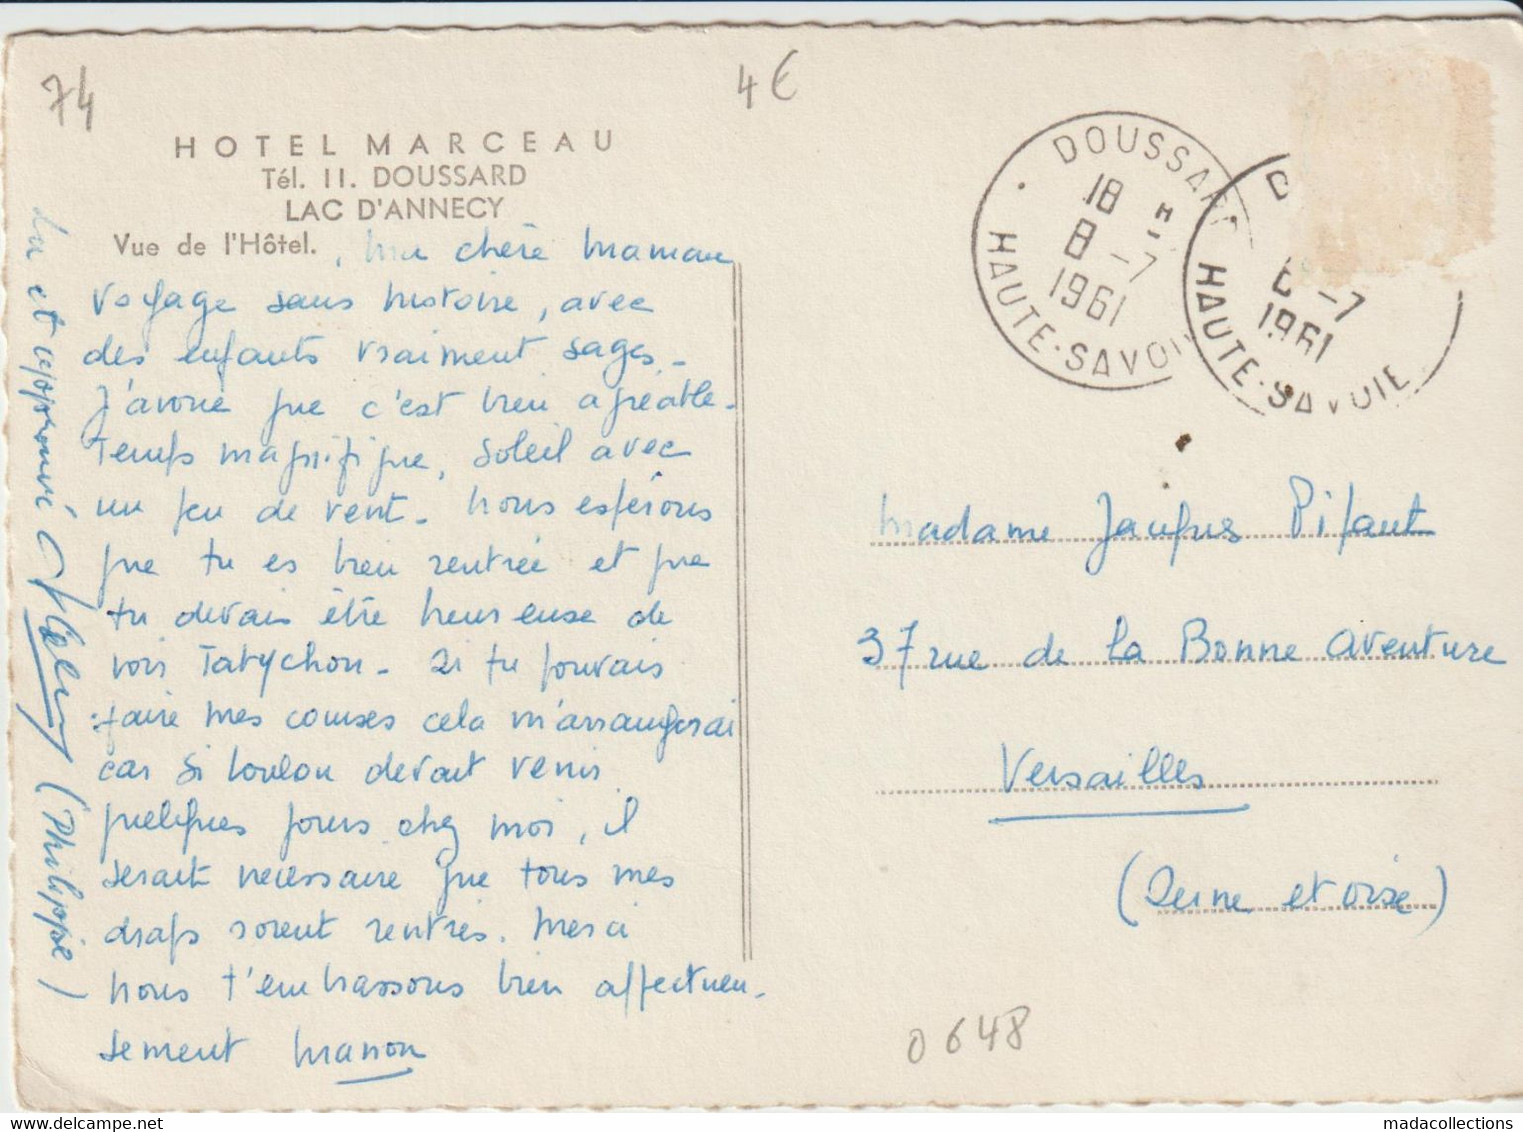 74
4€
HOTEL MARCEAU
Tél. 11. DOUSSARD
LAC D'ANNECY
Vue de l'Hôtel.
Ma chère Maman
Voyage sans histoire, avec
des enfants vraiment sages.
J'avoue que c'est bien agréable.
Temps magnifique, soleil avec
un peu de vent. Nous espérons
que tu es bien rentrée et que
tu devais être heureuse de
voir Tatychon. Si tu pouvais
faire mes courses cela m'arrangerai
car si Loulou devait venir
quelques jours chez moi, il
serait nécessaire que tous mes
draps soient rentrés. Merci
Nous t'embrassons bien affectueu-
sement Manon
Lu et approuvé
(Philippe)
DOUSSARD
18 H
8-7
1961
HAUTE-SAVOIE
D
8-7
1961
HAUTE-SAVOIE
Madame Jacques Pifaut
37 rue de la Bonne Aventure
Versailles
(Seine et Oise)
0648
madacollections